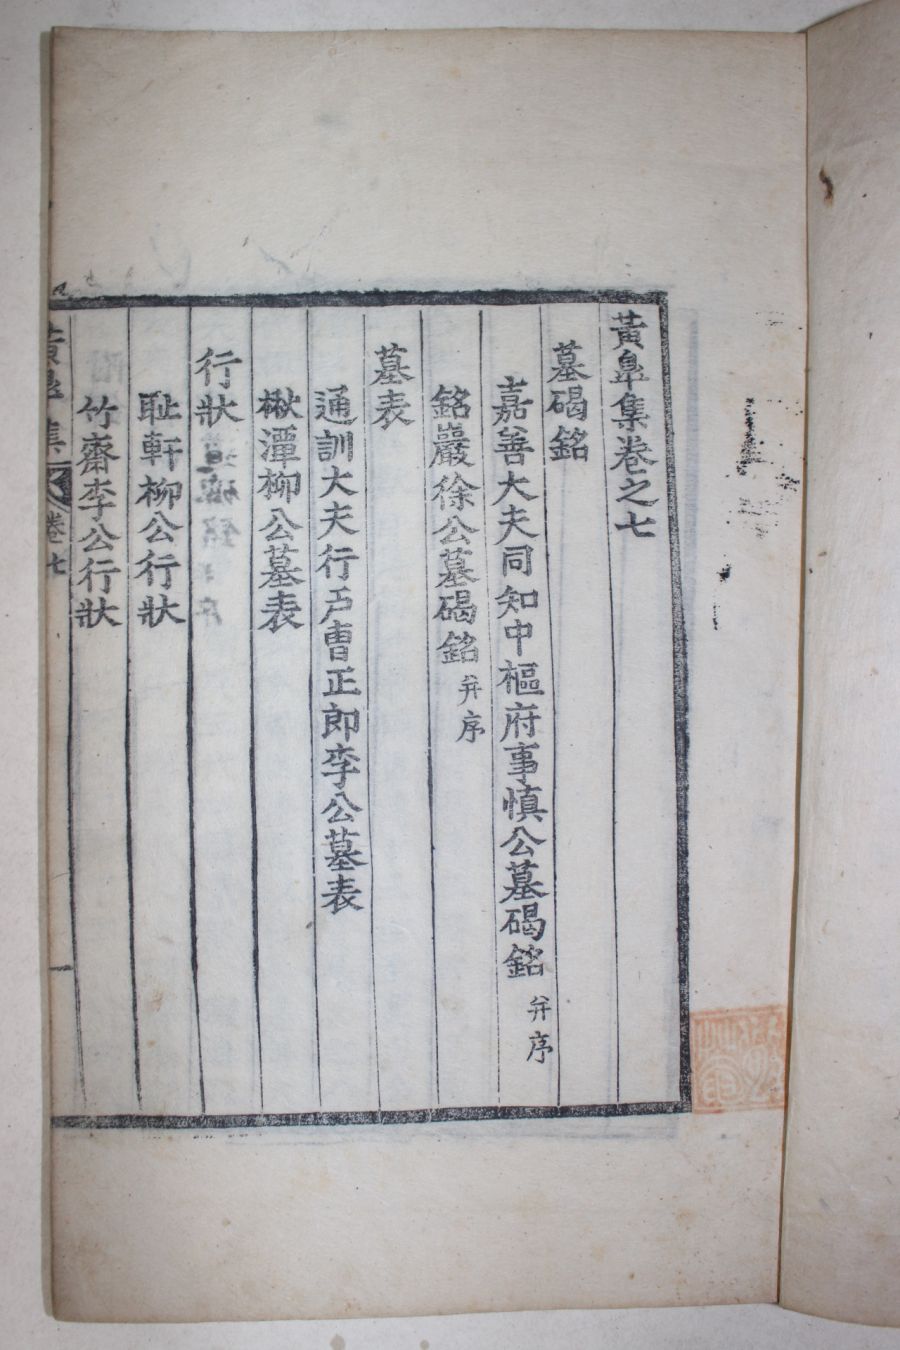 黃皐集卷之七
墓碣銘
嘉善大夫同知中樞府事慎公墓碣銘 并序
銘巖徐公墓碣銘 并序
墓表
通訓大夫行戶曹正郎李公墓表
楸潭柳公墓表
行狀
耻軒柳公行狀
竹齋李公行狀
黃皐集 卷七 一